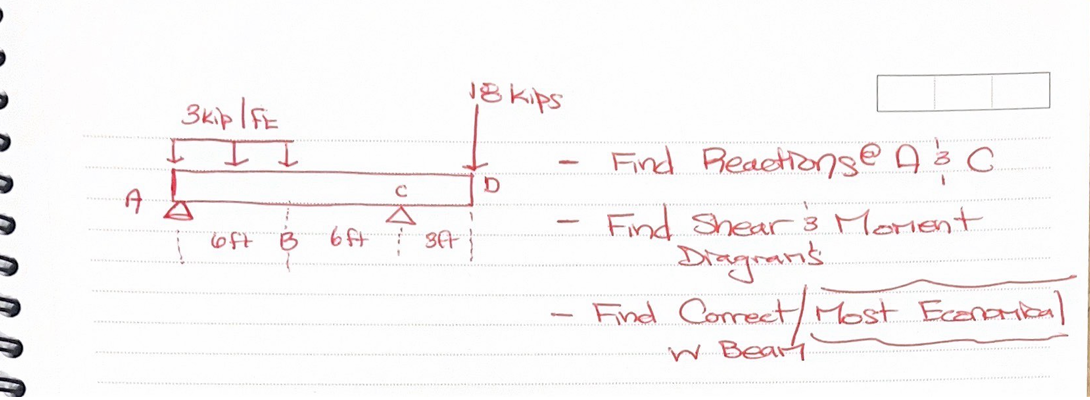 18 Kips
3kip/ft
- Find Reactions @ A & C
A
C
D
- Find Shear & Moment
6ft B 6ft 3ft
Diagrams
- Find Correct/Most Economical
W Beam